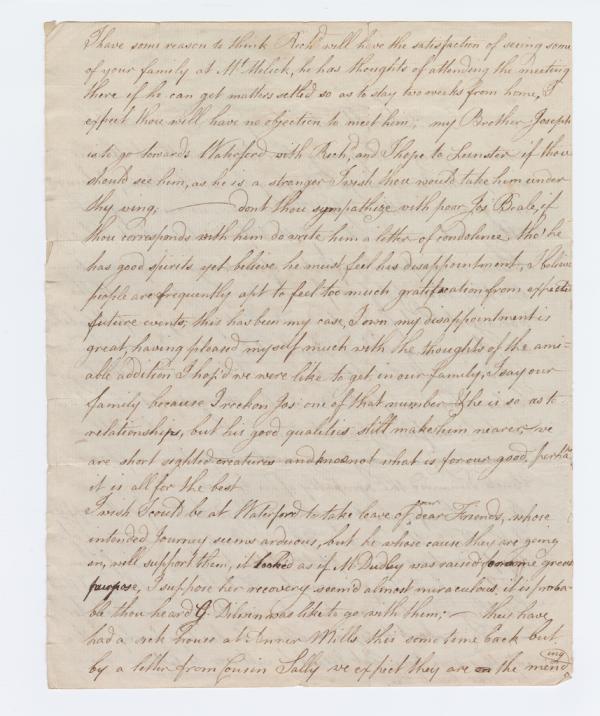 I have some reason to think Richd will have the satisfaction of seeing some
of your family at Mt Melick, he has thoughts of attending the meeting
there if he can get matters settled so as to stay two weeks from home, I
expect thou will have no objection to meet him; my Brother Joseph
is to go towards Waterford with Richd and I hope to Leinster if thou
should see him, as he is a stranger I wish thou would take him under
thy wing; — dont thou sympathize with poor Jos Beale, if
thou corresponds with him do write him a letter of condolence, tho' he
has good spirits yet believe he must feel his disappointment, I believe
people are frequently apt to feel too much gratification from
future events, this has been my case, I own my disappointment is
great, having pleased myself much with the thoughts of the ami=
able addition I hop'd we were like to get in our family, I say our
family because I reckon Jos one of that number & he is so as to
relationship, but his good qualities still make him nearer, we
are short sighted creatures and know not what is for our good, perha
it is all for the best
I wish I could be at Waterford to take leave of our dear Friends, whose
intended Journey seems arduous, but he whose cause they are going
in, will support them, it looked as if M Dudley was raised for some great
purpose, I suppose her recovery seem'd almost miraculous, it is proba=
ble thou heard G Dilwin was like to go with them; — they have
had a sick house at Anner Mills this some time back but
by a letter from Cousin Sally we expect they are on the mend
ing